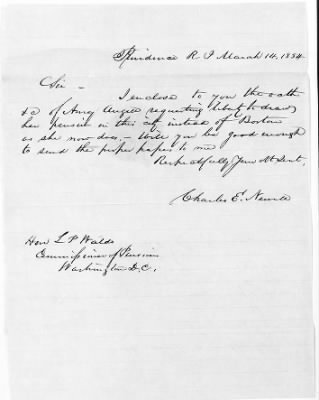 Providence R I March 14, 1854
Sir -
I enclose to you the oath
&c of Amey Angell requesting liberty to draw
her pension in this city instead of Boston
as she now does, - Will you be good enough
to send the proper papers to me
Respectfully Your Obt Servt,
Charles E. 
Hon L P Waldo
Commissioner of Pensions
Washington D.C.